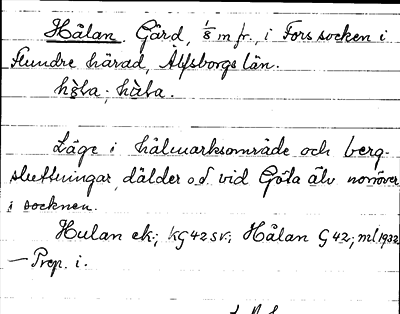 Hålan. Gård, 1/8 m fr., i Fors socken i
Flundre härad, Älfsborgs län.
hòla; hàla.
Läge i hålmarksområde och berg-
sluttningar, dälder o.d. vid Göta älv norröver
i socknen.
Hulan ek; KG 42 sv; Hålan G 42; ml 1932
— Prep. i.